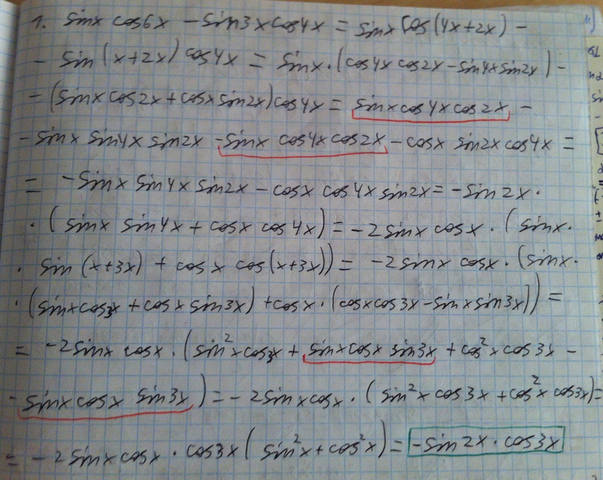 1. sinx cos6x - sin3xcos4x = sinx cos(4x+2x) -
- sin(x+2x) cos4x = sinx·(cos4x cos2x - sin4x sin2x) -
- (sinx cos2x + cosx sin2x)cos4x = sinx cos4x cos2x -
- sinx sin4x sin2x - sinx cos4x cos2x - cosx sin2x cos4x =
= - sinx sin4x sin2x - cosx cos4x sin2x = - sin2x ·
· (sinx sin4x + cosx cos4x) = -2sinx cosx · (sinx ·
· sin(x+3x) + cosx cos(x+3x)) = -2sinx cosx · (sinx ·
· (sinxcos3x + cosx sin3x) + cosx · (cosxcos3x - sinx sin3x)) =
= -2sinx cosx · (sin²x cos3x + sinxcosx sin3x + cos²x cos3x -
- sinx cosx sin3x) = -2sinxcosx · (sin²x cos3x + cos²x cos3x) =
= -2sinxcosx · cos3x (sin²x + cos²x) = -sin2x · cos3x